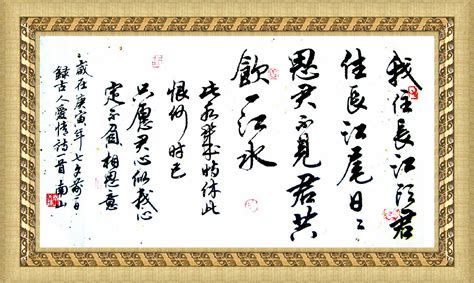 我住長江頭君
住長江尾日〻
思君不見君共
飲一江水
此水幾時休此
恨何時已
只愿君心似我心
定不負相思意
歲在庚寅年七夕前一日
錄古人愛情詩一首南山